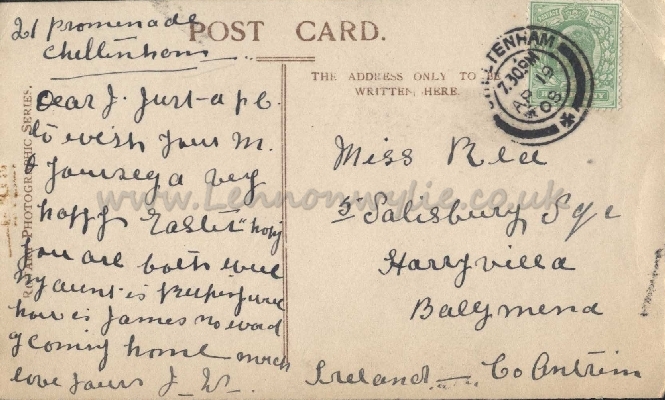 21 Promenade
Cheltenham
POST CARD.
THE ADDRESS ONLY TO BE
WRITTEN HERE.
CHELTENHAM
7.30PM
AP 19
08
Dear J. Just a p.c.
to wish your M.
& yourself a very
happy Easter hope
you are both well
my aunt is
how is James no word
of coming home much
love yours J
Miss Rea
5 Salisbury Sqe
Harryville
Ballymena
Ireland Co Antrim
PHOTOGRAPHIC SERIES.
www.Lennonwylie.co.uk